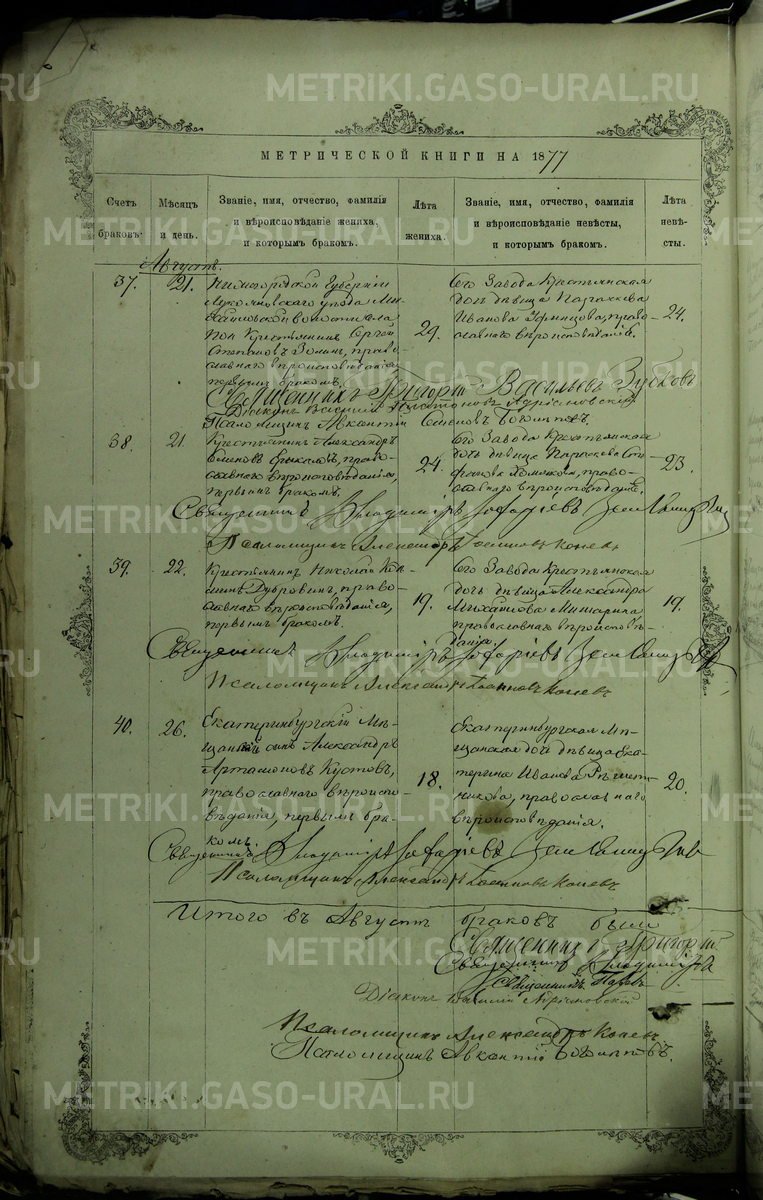 METRIKI.GASO-URAL.RU
МЕТРИЧЕСКОЙ КНИГИ НА 1877
Счетъ браковъ.
Мѣсяцъ и день.
Званіе, имя, отчество, фамилія
и вѣроисповѣданіе жениха,
и которымъ бракомъ.
Лѣта жениха.
Званіе, имя, отчество, фамилія
и вѣроисповѣданіе невѣсты,
и которымъ бракомъ.
Лѣта невѣсты.
Августъ.
37.
21.
Нижегородской Губерніи
Лукояновскаго уѣзда
волости села
Крестьянинъ Сергей
Степановъ Зонинъ, право-
славнаго вѣроисповѣданія,
первымъ бракомъ.
29.
Сего Завода Крестьянская
дочь дѣвица Параскева
Иванова, право-
славнаго вѣроисповѣданія.
24.
Священникъ Григорій Васильевъ Зубковъ
Діаконъ Василій Платоновъ Адріановскій
Псаломщикъ Авксентій Семеновъ Богомоловъ
38.
21
Крестьянинъ Александръ
право-
славнаго вѣроисповѣданія,
первымъ бракомъ.
24.
Сего Завода Крестьянская
дочь дѣвица Параскева Сте-
фанова Хомякова, право-
славнаго вѣроисповѣданія.
23.
Священникъ Владиміръ
Псаломщикъ Александръ Іоанновъ Коневъ
39.
22.
Крестьянинъ Николай Коз-
минъ Дубровинъ, право-
славнаго вѣроисповѣданія,
первымъ бракомъ.
19.
Сего Завода Крестьянская
дочь дѣвица Александра
Михайлова Мишарина
православнаго вѣроисповѣ-
данія.
19.
Священникъ Владиміръ
Псаломщикъ Александръ Іоанновъ Коневъ
40.
26.
Екатеринбургскій Мѣ-
щанскій сынъ Александръ
Артамоновъ Кустовъ,
православнаго вѣроиспо-
вѣданія, первымъ бра-
комъ.
18.
Екатеринбургская Мѣ-
щанская дочь дѣвица Ека-
терина Иванова Рѣшет-
никова, православнаго
вѣроисповѣданія.
20.
Священникъ Владиміръ
Псаломщикъ Александръ Іоанновъ Коневъ
Итого въ Августѣ браковъ было
Священникъ Григорій
Священникъ Владиміръ
Священникъ Павелъ
Діаконъ Василій Адріановскій
Псаломщикъ Александръ Коневъ
Псаломщикъ Авксентій Богомоловъ.